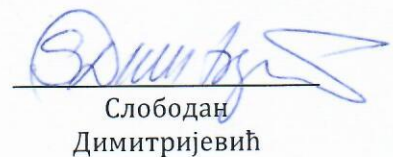 Слободан
Димитријевић